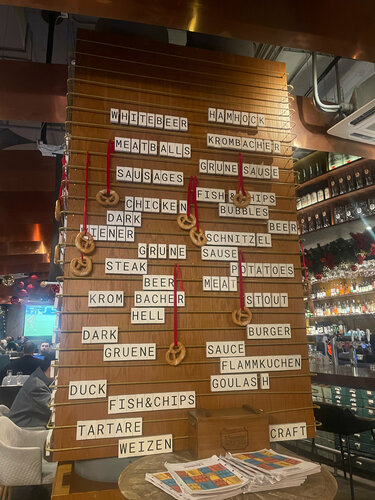 WHITEBEER HAMHOCK
MEATBALLS KROMBACHER
SAUSAGES GRUNE SAUSE
FISH & HIPS
CHICKEN BUBBLES
DARK BEER
IENER SCHNITZEL
GRUNE SAUSE
STEAK POTATOES
BEER MEAT
KROM BACHER STOUT
HELL
DARK BURGER
GRUENE SAUCE
FLAMMKUCHEN
DUCK GOULASH
FISH&CHIPS
TARTARE CRAFT
WEIZEN